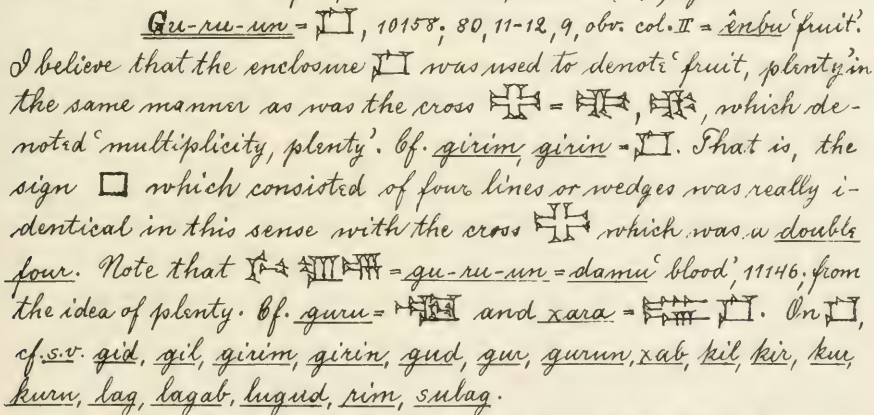 Gu-ru-un = 𒆸, 10158; 80, 11-12, 9, obv. col. II = ênbu ‘fruit’.
I believe that the enclosure 𒆸 was used to denote ‘fruit, plenty’ in
the same manner as was the cross = , , which de-
noted ‘multiplicity, plenty’. Cf. girim, girin = 𒆸. That is, the
sign □ which consisted of four lines or wedges was really i-
dentical in this sense with the cross which was a double
four. Note that = gu-ru-un = damu ‘blood’, 11146; from
the idea of plenty. Cf. guru = and xara = 𒆸. On 𒆸,
cf. s.v. gid, gil, girim, girin, gud, gur, gurun, xab, kil, kir, kur,
kuru, lag, lagab, lugud, rim, sulag.